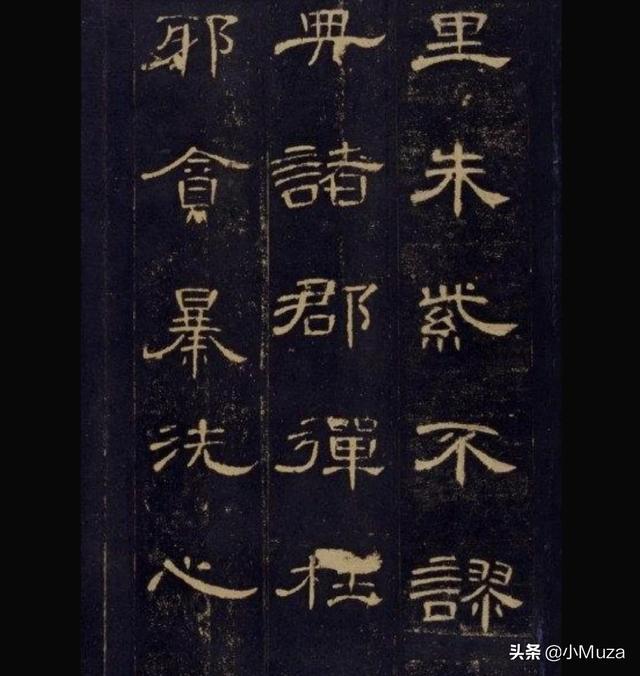 里朱紫不謬
典諸郡彈枉
邪貪暴洗心
头条 @小Muza